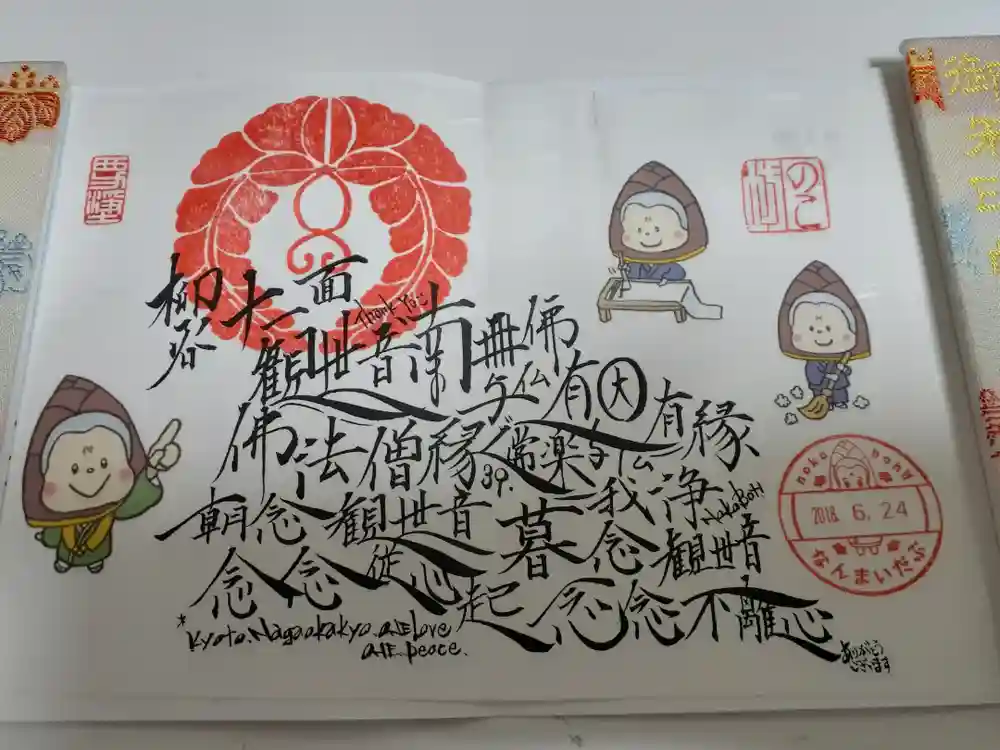 柳谷
十一面
Thank You
観世音南無佛
与仏有因有縁
佛法僧縁
39.
常楽我浄
朝念観世音
暮念観世音
念念従心起
念念不離心
*Kyoto.Nagaokakyo.ONE love
ONE peace.
ありがとう
ございます
のこ
noko bond
2018. 6. 24
おんまいだぶ